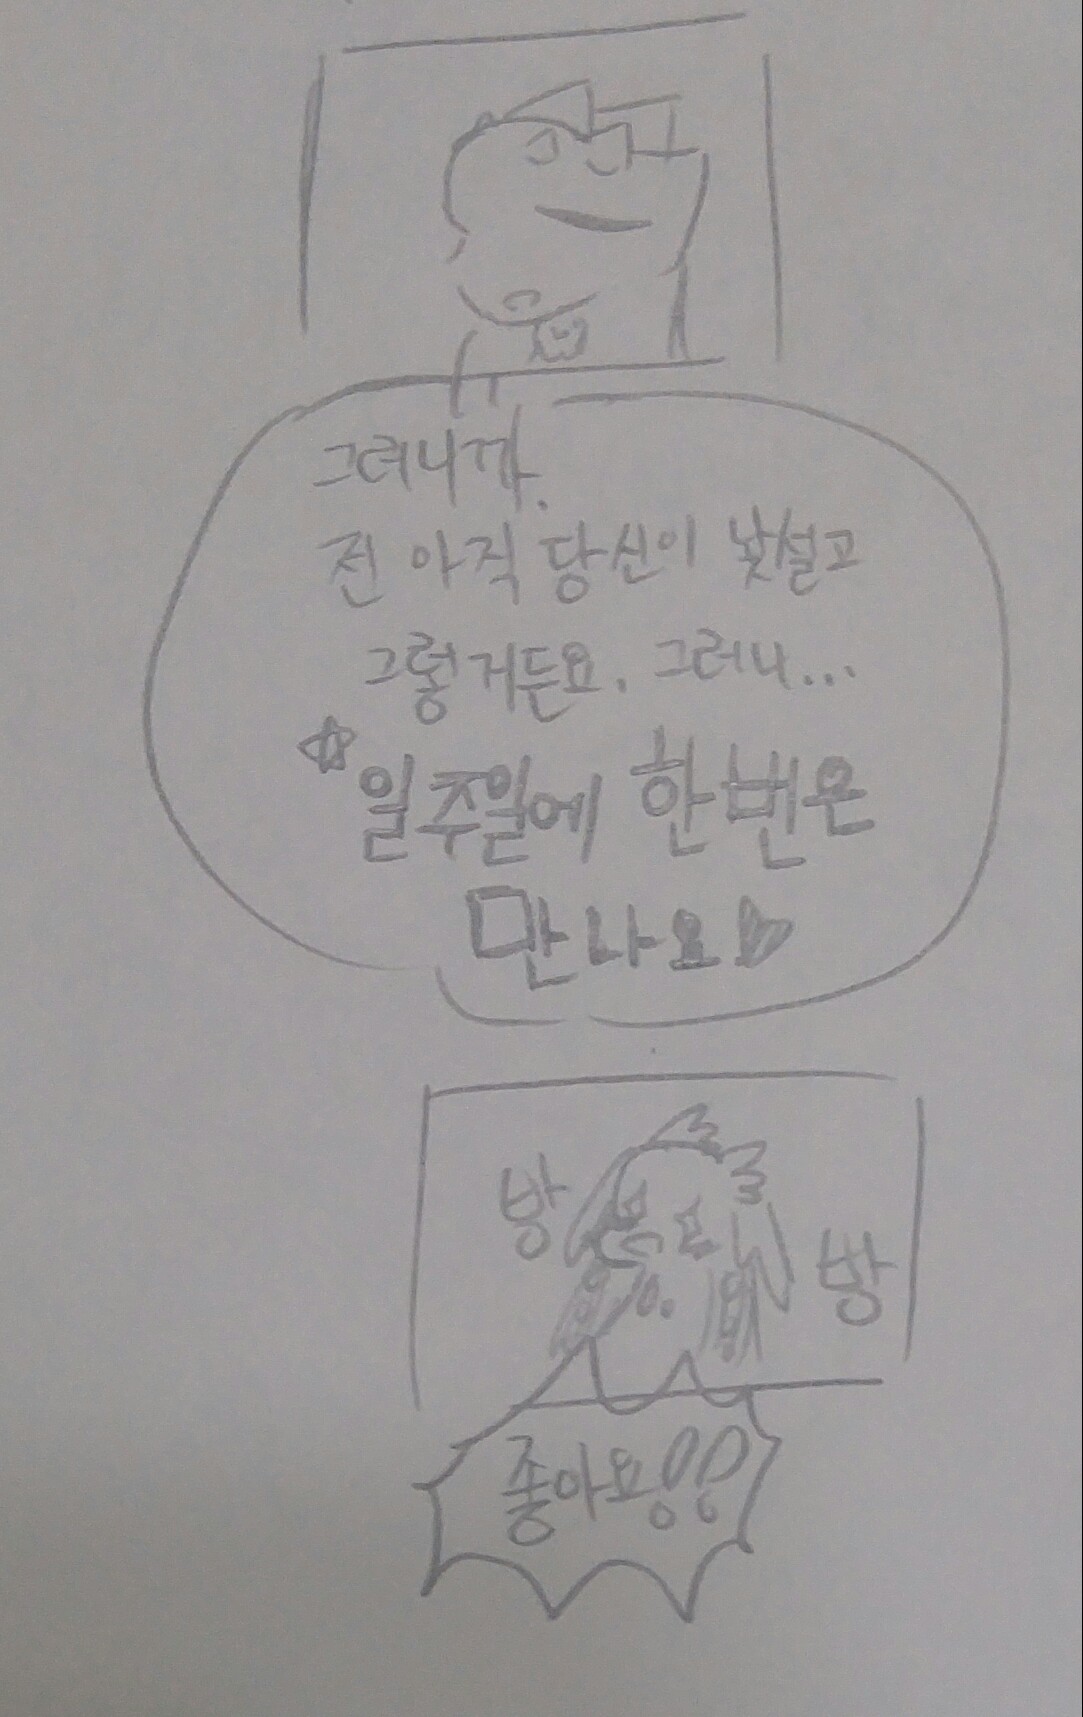 그러니까.
전 아직 당신이 낯설고
그렇거든요. 그러니...
☆일주일에 한번은
만나요♥
방 방
좋아요!!